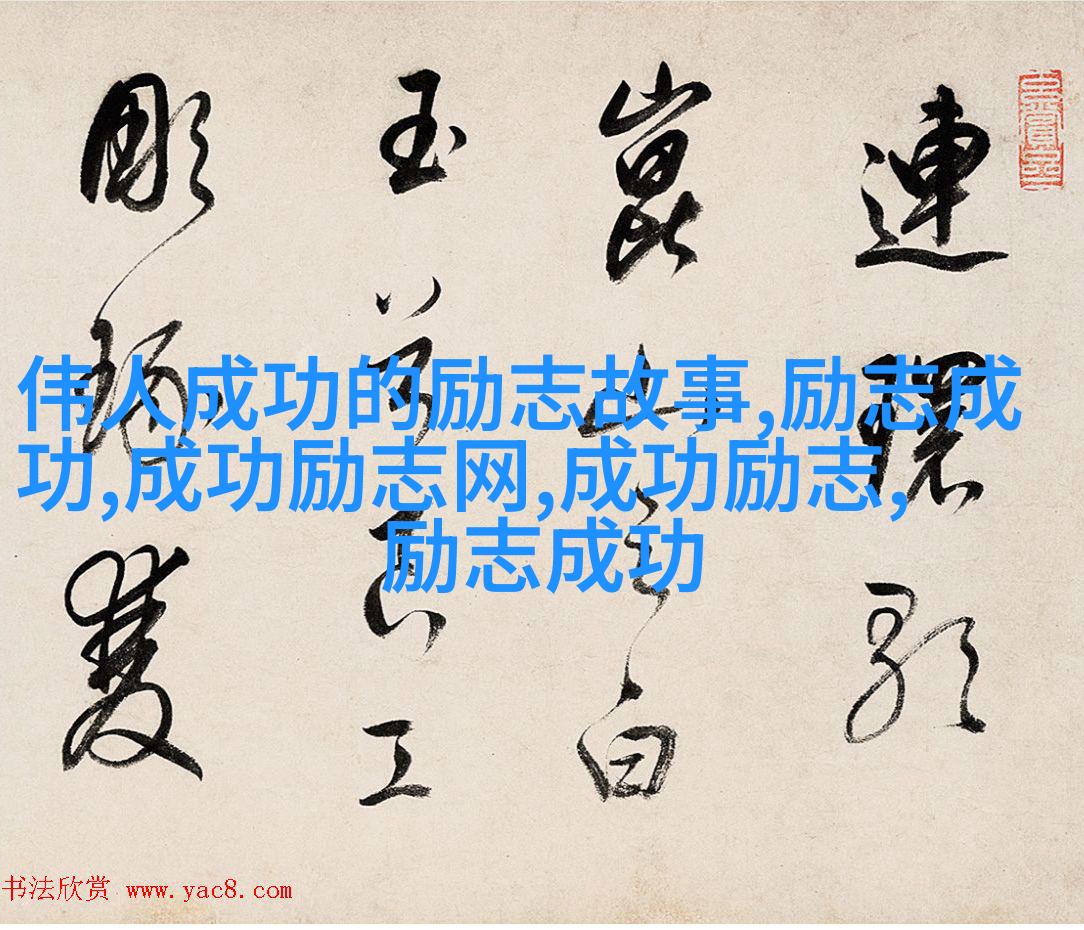 連環歌
崑山之白
玉良工
彫琢雙
伟人成功的励志故事,励志成
功,成功励志网,成功励志,
励志成功
书法欣赏 www.yac8.com